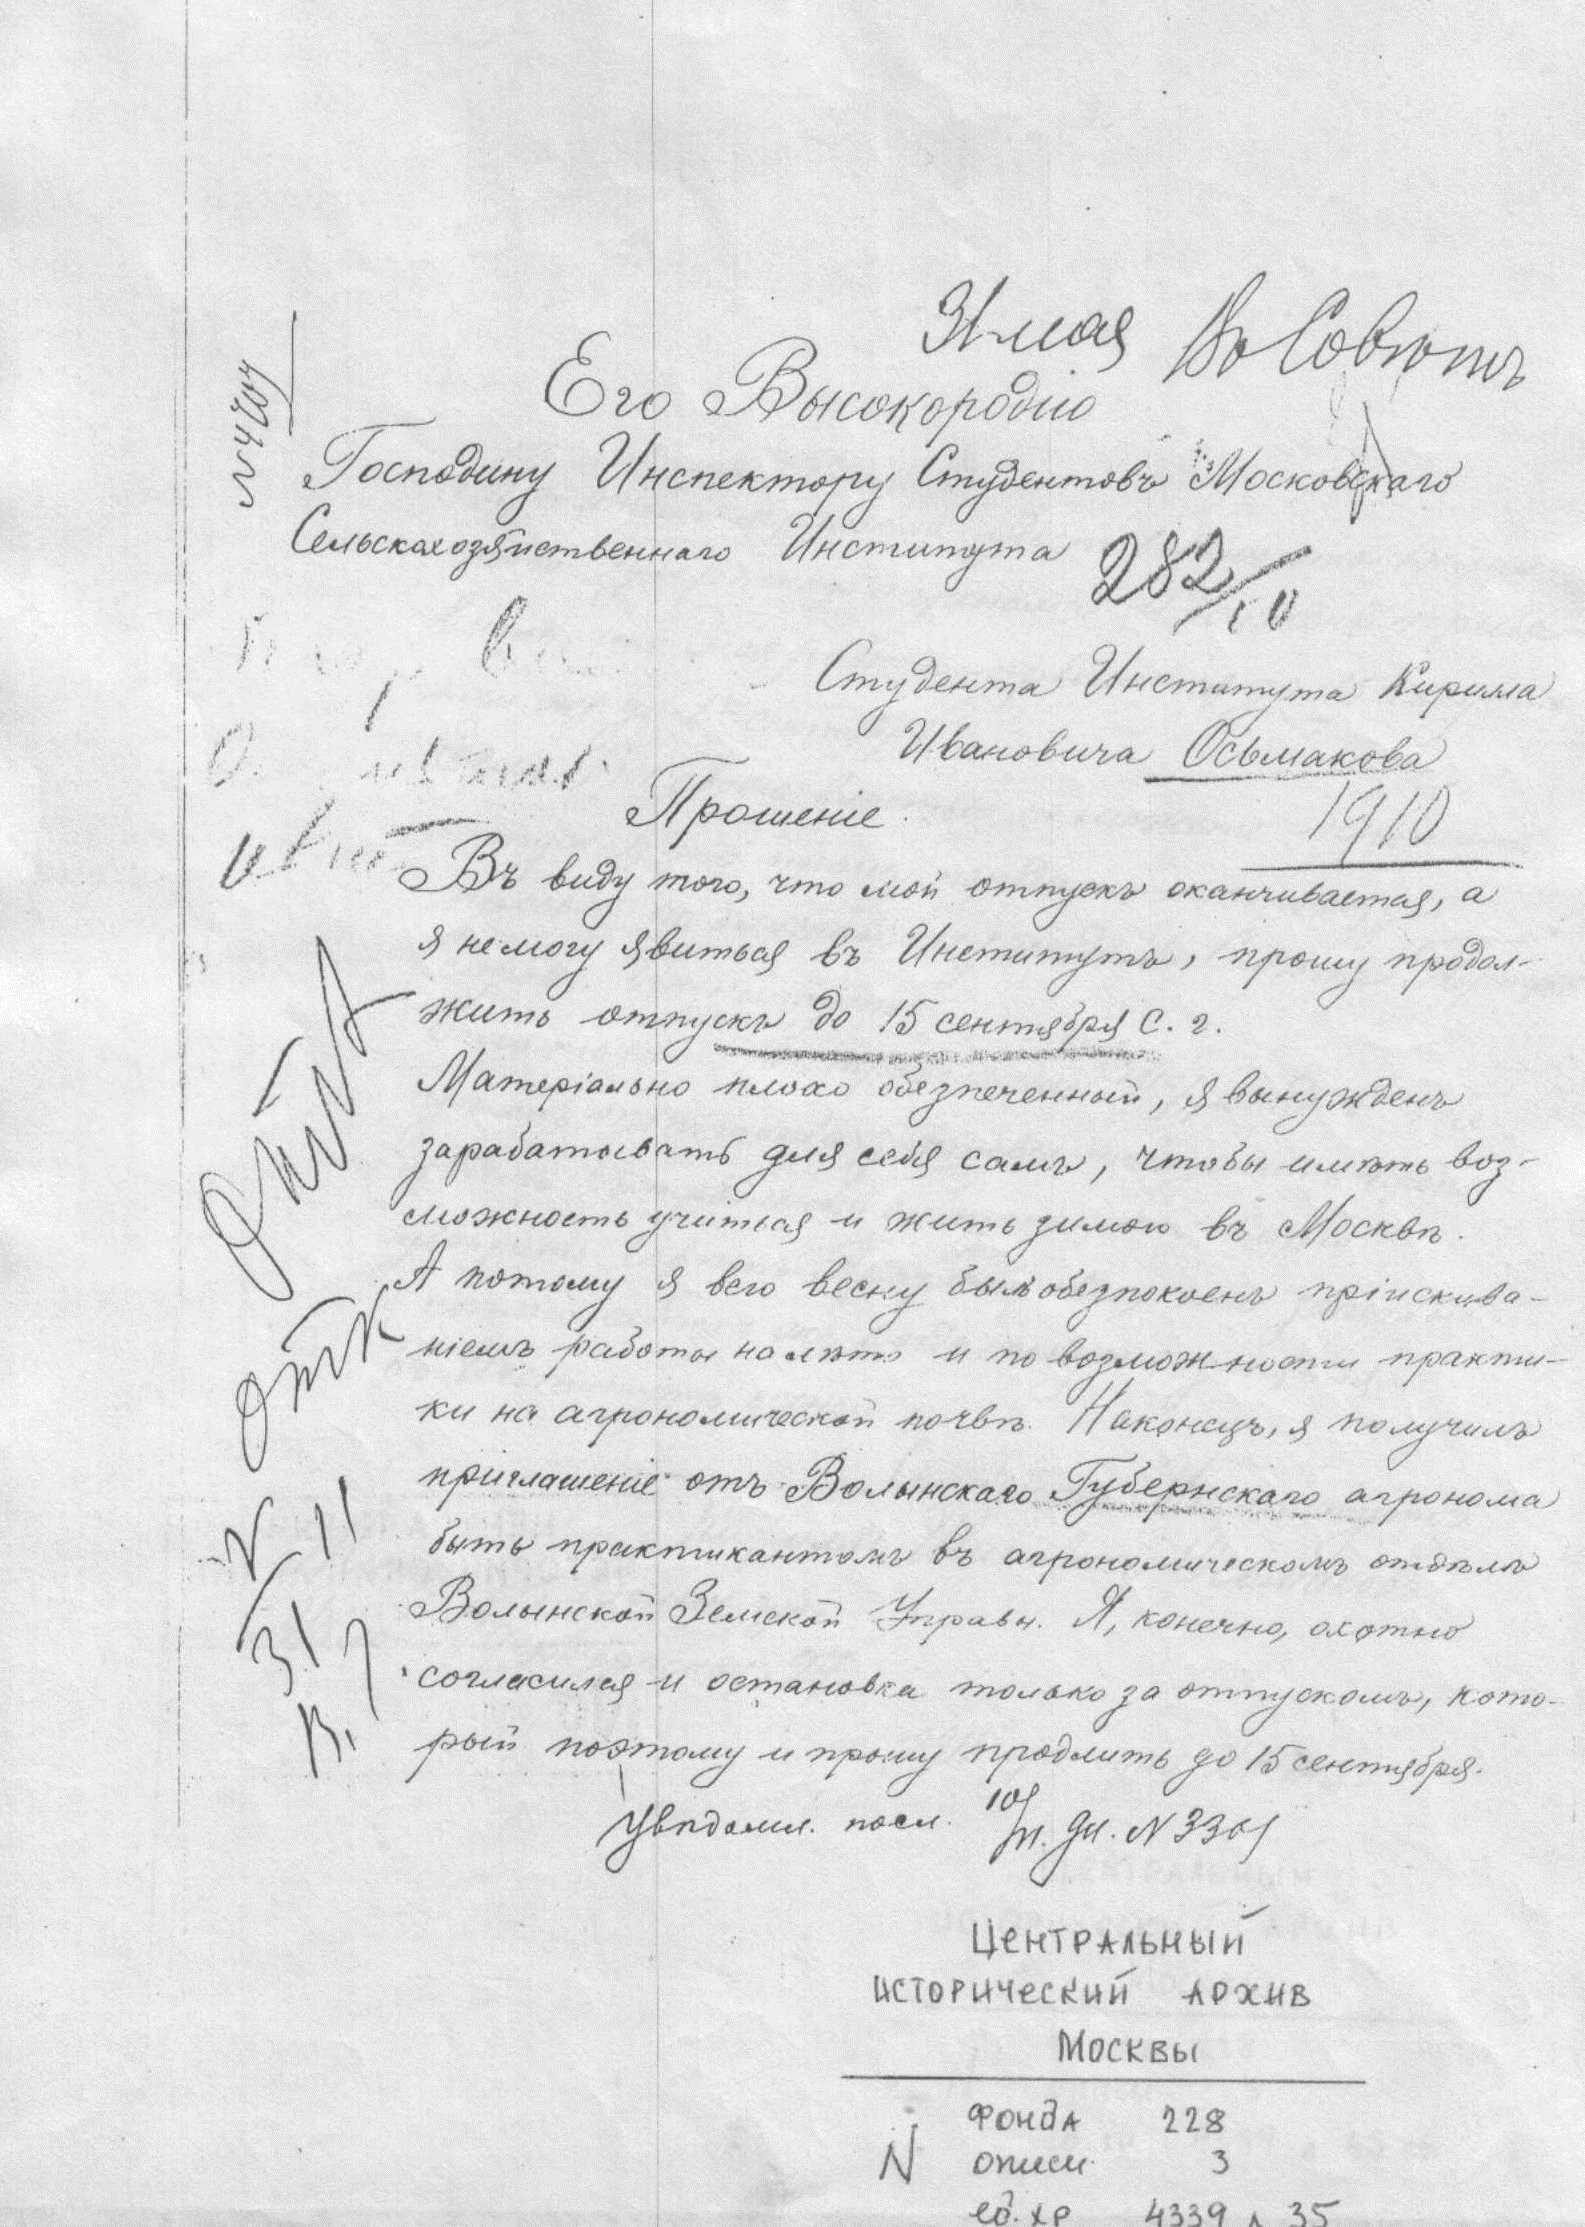 31 мая Въ Совѣтъ
Его Высокородію
Господину Инспектору Студентовъ Московскаго
Сельскахозяйственнаго Института
282/10
Студента Института Кирима
Ивановича Осьмакова
1910
Прошеніе.
Въ виду того, что мой отпускъ оканчивается, а
я не могу явиться въ Институтъ, прошу продол-
жить отпускъ до 15 сентября с. г.
Матеріально плохо обезпеченный, я вынужденъ
зарабатывать для себя самъ, чтобы имѣть воз-
можность учиться и жить зимою въ Москвѣ.
А потому я всю весну былъ обезпокоенъ пріискива-
ніемъ работы на лѣто и по возможности практи-
ки на агрономической почвѣ. Наконецъ, я получилъ
приглашеніе отъ Волынскаго Губернскаго агронома
быть практикантомъ въ агрономическомъ отдѣлѣ
Волынской Земской Управы. Я, конечно, охотно
согласился и остановка только за отпускомъ, кото-
рый поэтому и прошу продлить до 15 сентября.
Увѣдомл. посл. N 3301
Центральный
исторический архив
Москвы
Фонда 228
N описи 3
ед. хр 4339 л 35